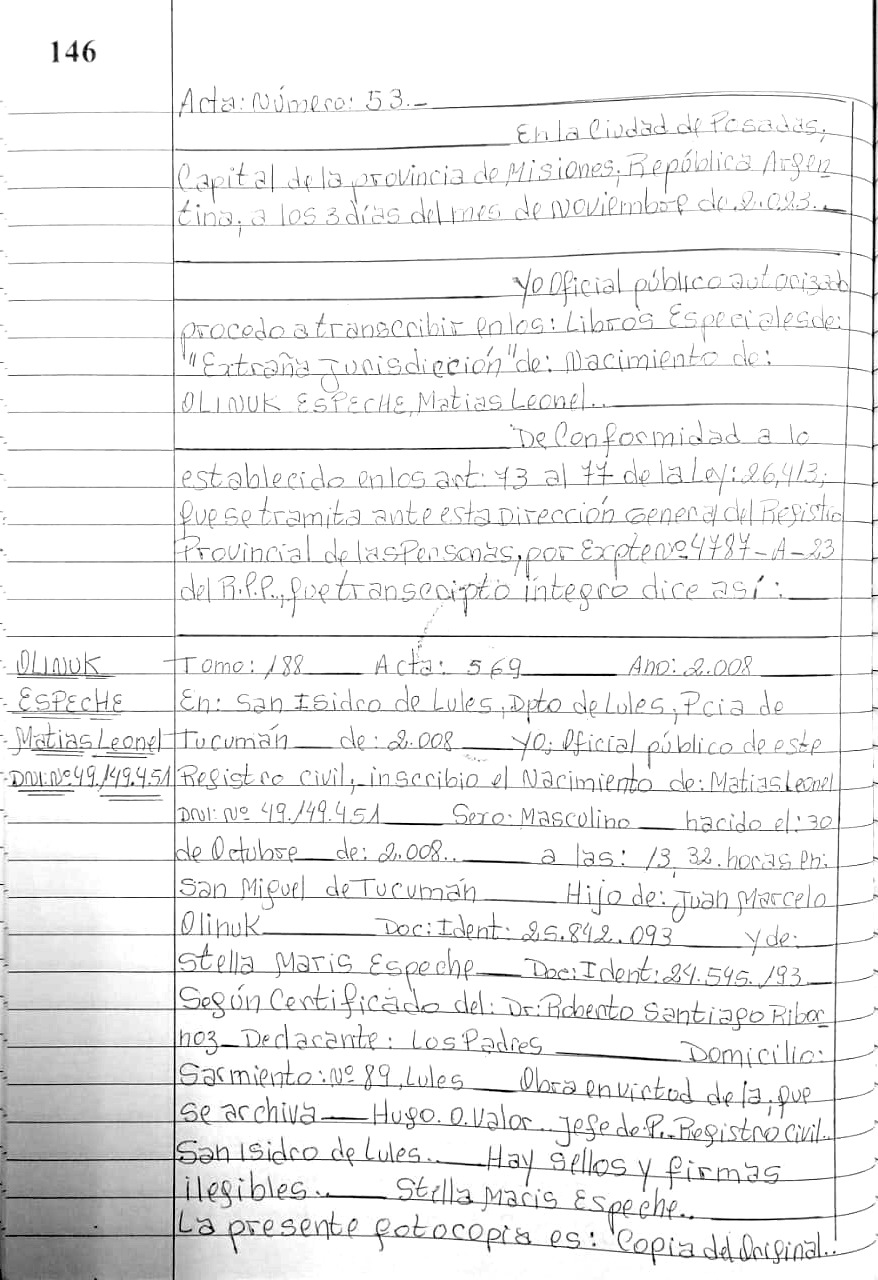 146
Acta: Número: 53.-
En la Ciudad de Posadas,
Capital de la provincia de Misiones, República Argen
tina, a los 3 días del mes de Noviembre de 2.023.-
Yo Oficial público autorizad
procedo a transcribir en los: Libros Especiales de:
"Extraña Jurisdicción" de: Nacimiento de:
OLINUK ESPECHE, Matias Leonel..
De Conformidad a lo
establecido en los art: 73 al 77 de la Ley: 26,413;
que se tramita ante esta Dirección General del Registro
Provincial de las Personas, por Expte Nº 4787-A-23
del R.P.P., que transcripto íntegro dice así:
OLINUK
ESPECHE
Matias Leonel
DNI: Nº 49.149.451
Tomo: 188 Acta: 569 Ano: 2.008
En: San Isidro de Lules, Dpto de Lules, Pcia de
Tucumán de: 2.008 Yo, Oficial público de este
Registro civil, inscribio el Nacimiento de: Matias Leonel
DNI: Nº 49.149.451 Sexo: Masculino nacido el: 30
de Octubre de: 2.008.. a las: 13,32. horas en:
San Miguel de Tucumán Hijo de: Juan Marcelo
Olinuk Doc: Ident: 25.842.093 y de:
Stella Maris Espeche Doc: Ident: 24.545.193
Según Certificado del: Dr: Roberto Santiago Ribar
noz Declarante: Los Padres Domicilio:
Sarmiento: Nº 89, Lules Obra en virtud de la, que
se archiva Hugo. O. Valor.. Jefe de P.. Registro Civil..
San Isidro de Lules.. Hay sellos y firmas
ilegibles.. Stella Maris Espeche..
La presente fotocopia es: Copia del Original..